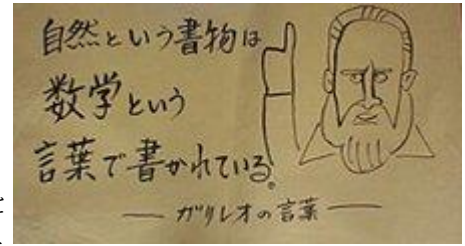 自然という書物は
数学という
言葉で書かれている。
― ガリレオの言葉 ―